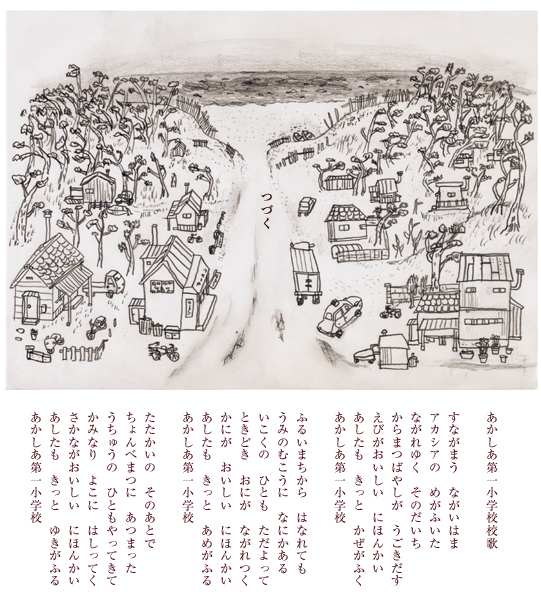 つづく
あかしあ第一小学校校歌
すながまう　ながいはま
アカシアの　めがふいた
ながれゆく　そのだいち
からまつばやしが　うごきだす
えびがおいしい　にほんかい
あしたも　きっと　かぜがふく
あかしあ第一小学校
ふるいまちから　はなれても
うみのむこうに　なにかある
いこくの　ひとも　ただよって
ときどき　おにが　ながれつく
かにが　おいしい　にほんかい
あしたも　きっと　あめがふる
あかしあ第一小学校
たたかいの　そのあとで
ちょんべまつに　あつまった
うちゅうの　ひともやってきて
かみなり　よこに　はしってく
さかながおいしい　にほんかい
あしたも　きっと　ゆきがふる
あかしあ第一小学校